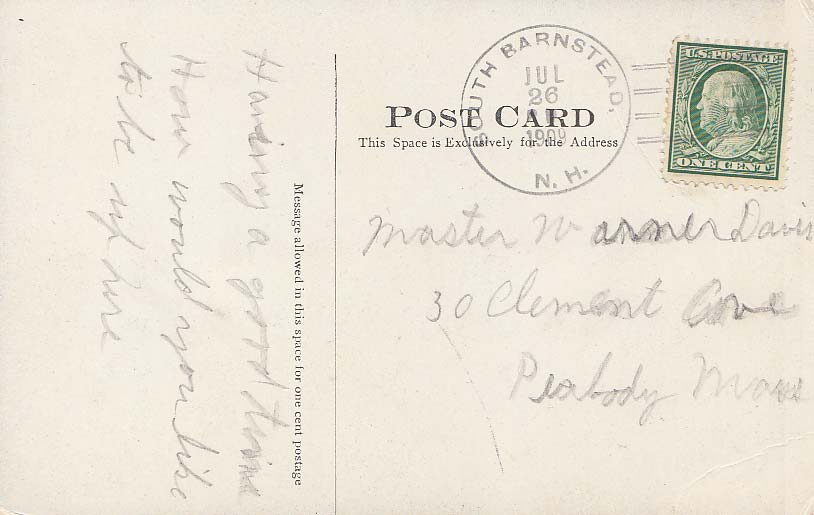 Having a good time
How would you like
to be up here
Message allowed in this space for one cent postage
POST CARD
This Space is Exclusively for the Address
SOUTH BARNSTEAD,
JUL
26
1909
N. H.
U.S. POSTAGE
ONE CENT
Master Warner Davis
30 Clement Ave
Peabody Mass